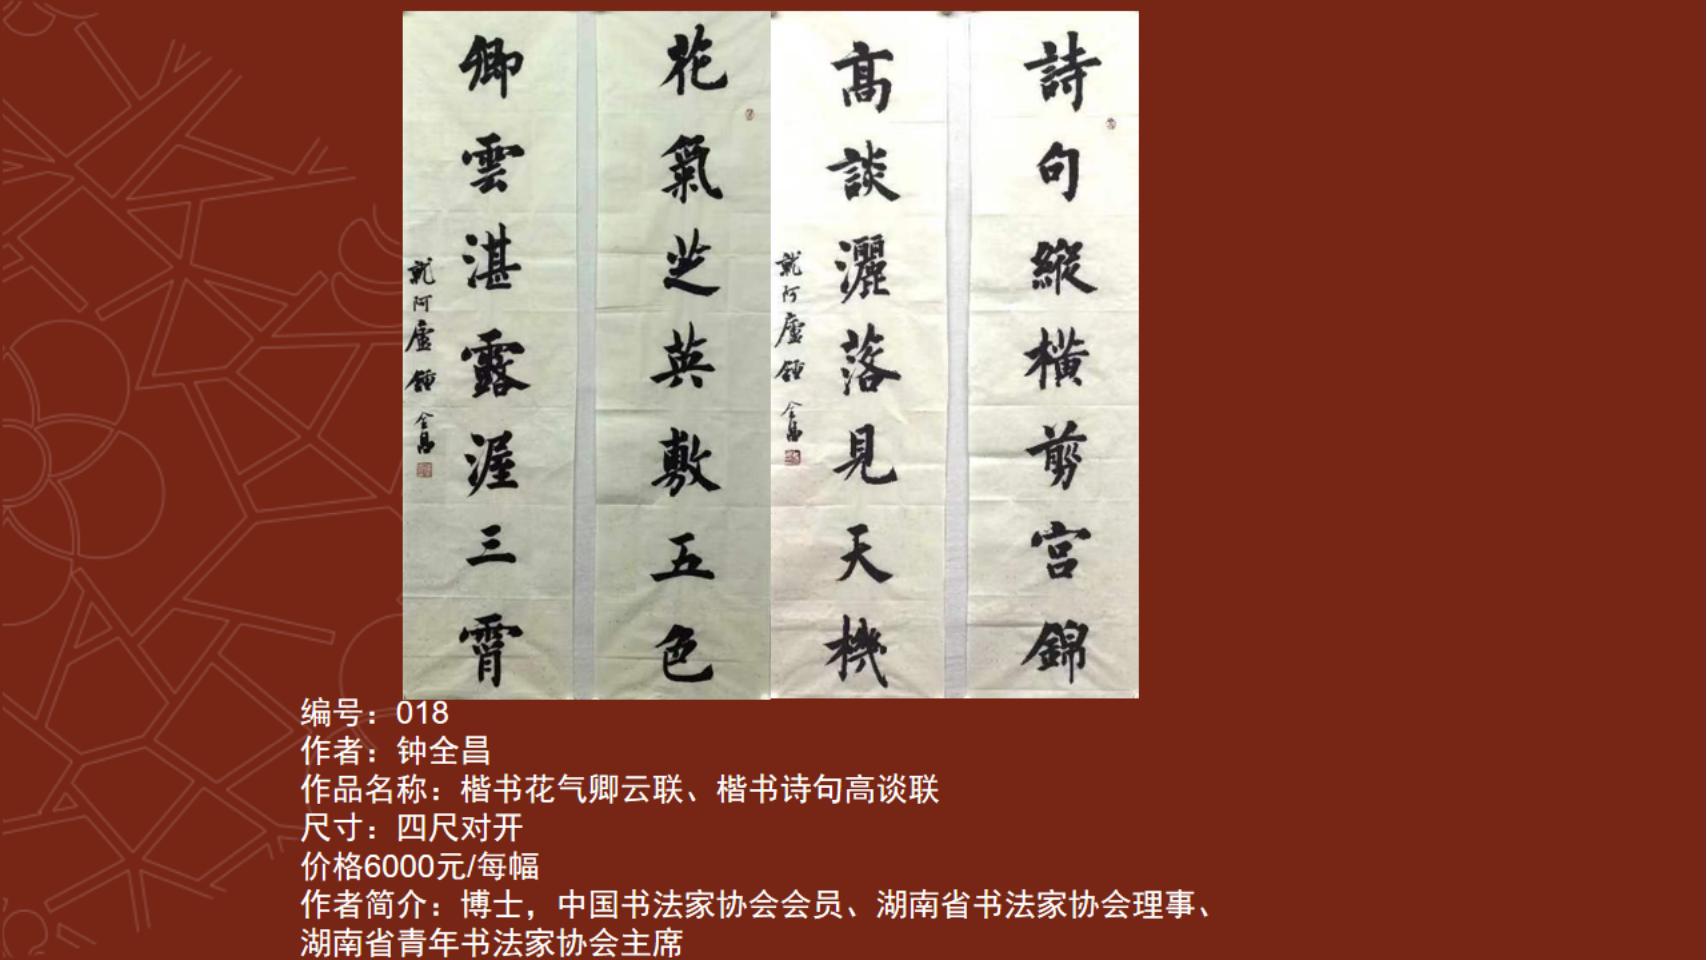 詩句縱橫剪宮錦
高談灑落見天機
就阿廬鍾全昌
花氣芝英敷五色
卿雲湛露渥三霄
就阿廬鍾全昌
编号：018
作者：钟全昌
作品名称：楷书花气卿云联、楷书诗句高谈联
尺寸：四尺对开
价格6000元/每幅
作者简介：博士，中国书法家协会会员、湖南省书法家协会理事、
湖南省青年书法家协会主席